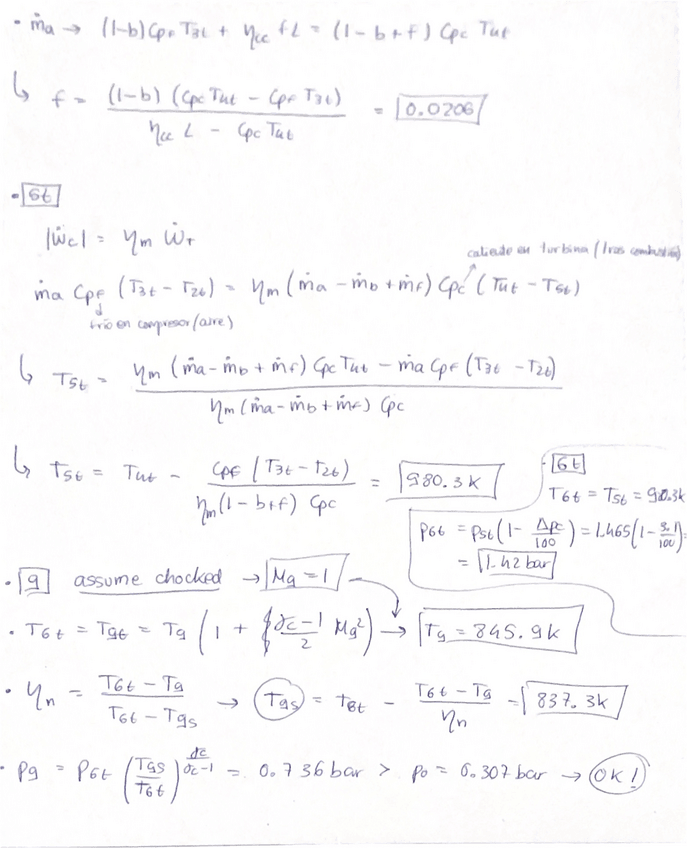 • ṁa → (1-b) CpF T3t + ηcc f L = (1-b+f) Cpc T4t
↳ f = (1-b) (Cpc T4t - CpF T3t) / ηcc L - Cpc T4t = 0.0206
• 5t
|Ẇc| = ηm ẆT
caliente en turbina (tras combustión)
ṁa CpF (T3t - T2t) = ηm (ṁa - ṁb + ṁf) Cpc (T4t - T5t)
frío en compresor (aire)
↳ T5t = ηm (ṁa - ṁb + ṁf) Cpc T4t - ṁa CpF (T3t - T2t) / ηm (ṁa - ṁb + ṁf) Cpc
↳ T5t = T4t - CpF (T3t - T2t) / ηm (1-b+f) Cpc = 980.3 K
• 6t
T6t = T5t = 980.3K
P6t = P5t (1 - Δpc/100) = 1.465 (1 - 3.1/100) =
= 1.42 bar
• 9 assume chocked → M9 = 1
• T6t = T9t = T9 (1 + γc-1/2 M9²) → T9 = 845.9 K
• ηn = T6t - T9 / T6t - T9s → T9s = T6t - T6t - T9 / ηn = 837.3K
• P9 = P6t (T9s/T6t)^γc/γc-1 = 0.736 bar > p0 = 0.307 bar → OK!